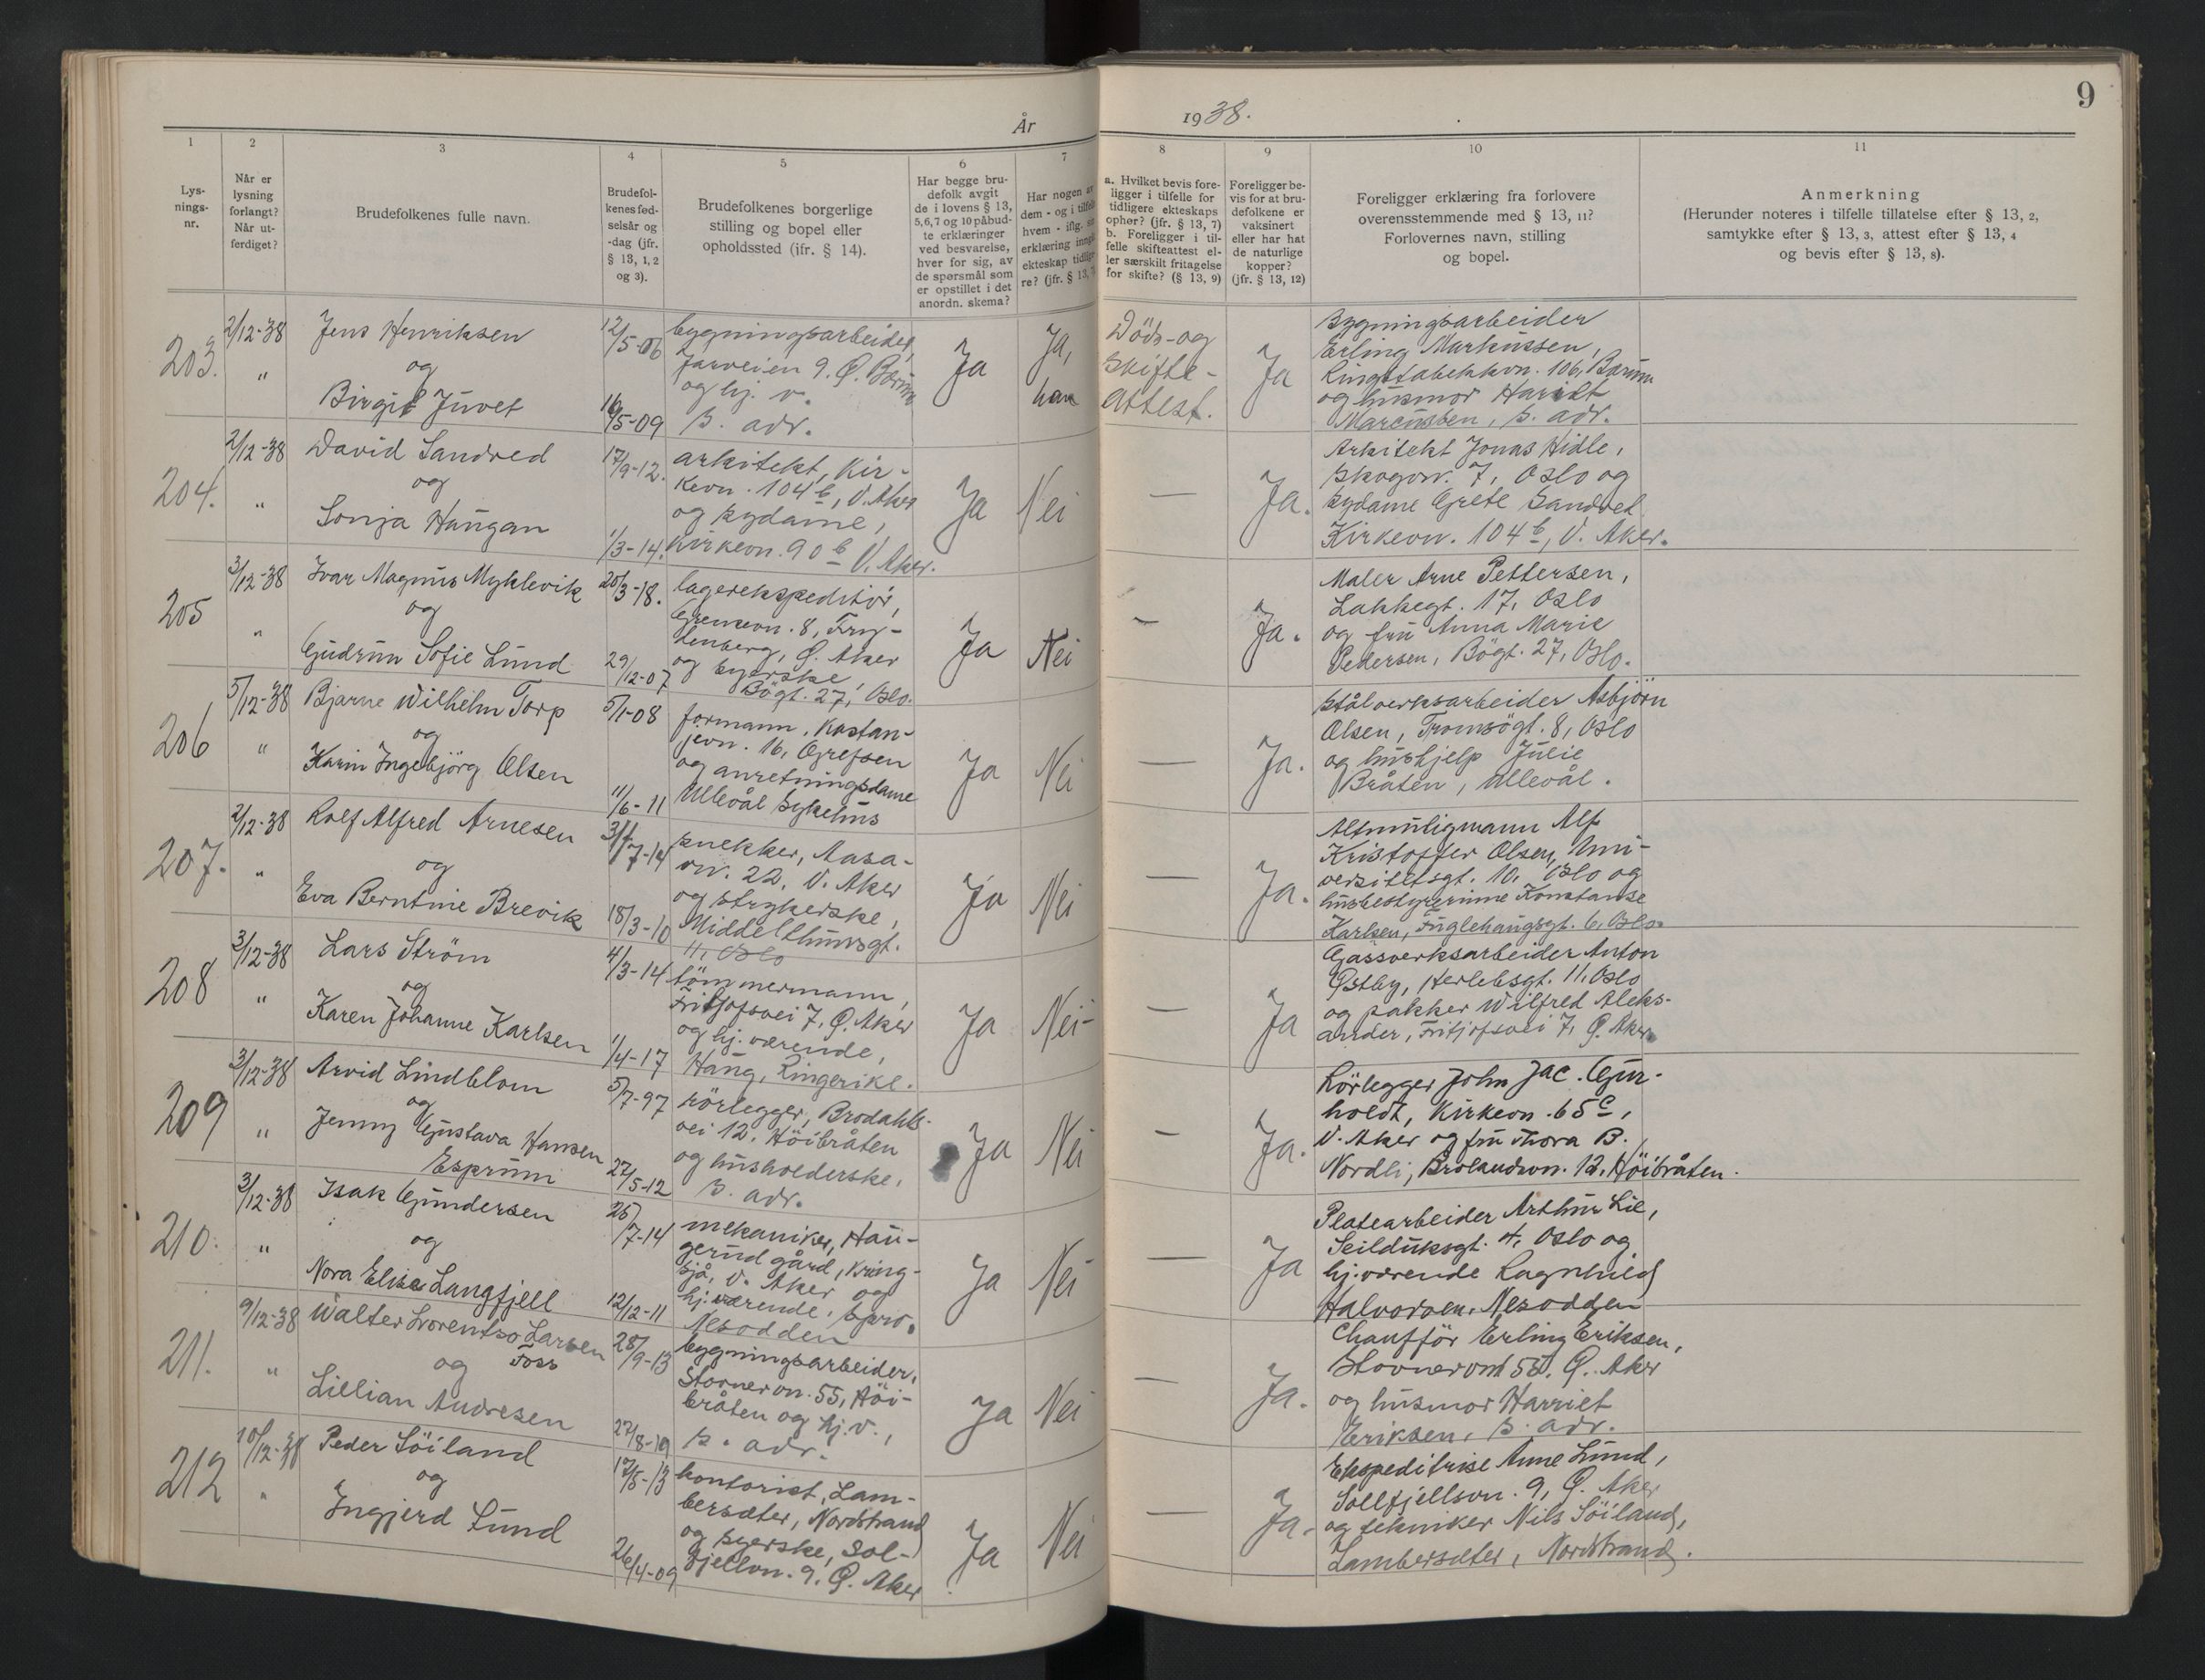 År 1938.
9
1
2
3
4
5
6
7
8
9
10
11
Lys-
nings-
nr.
Når er
lysning
forlangt?
Når ut-
ferdiget?
Brudefolkenes fulle navn.
Brudefol-
kenes fød-
selsår og
-dag (jfr.
§ 13, 1, 2
og 3).
Brudefolkenes borgerlige
stilling og bopel eller
opholdssted (ifr. § 14).
Har begge bru-
defolk avgit
de i lovens § 13,
5,6,7 og 10 påbud-
te erklæringer
ved besvarelse,
hver for sig, av
de spørsmål som
er opstillet i det
anordn. skema?
Har nogen av
dem - og i tilfelle
hvem - iflg.
erklæring inngått
ekteskap tidlige-
re? (jfr. § 13, 7)
a. Hvilket bevis fore-
ligger i tilfelle for
tidligere ekteskaps
ophør? (jfr. § 13, 7)
b. Foreligger i til-
felle skifteattest el-
ler særskilt fritagelse
for skifte? (§ 13, 9)
Foreligger be-
vis for at bru-
defolkene er
vaksinert
eller har hat
de naturlige
kopper?
(jfr. § 13, 12)
Foreligger erklæring fra forlovere
overensstemmende med § 13, 11?
Forlovernes navn, stilling
og bopel.
Anmerkning
(Herunder noteres i tilfelle tillatelse efter § 13, 2,
samtykke efter § 13, 3, attest efter § 13, 4
og bevis efter § 13, 8).
203.
2/12-38
"
Jens Henriksen
og
Birgit Juvet
12/5-06
16/5-09
bygningsarbeider,
Jarveien 9. Ø. Bærum
og hj. v.
s. adr.
Ja
Ja,
han
Döds- og
skifte-
attest.
Ja
Bygningsarbeider
Erling Markussen,
Ringstabekkvn. 106, Bærum
og husmor Harriet
Marcussen, s. adr.
204.
2/12-38
"
David Sandved
og
Sonja Haugan
17/9-12.
1/3-14.
arkitekt, Kir-
kevn. 104 b, V. Aker
og sydame,
Kirkevn. 90 b V. Aker.
Ja
Nei
—
Ja.
Arkitekt Jonas Hidle,
Skogvn. 7, Oslo og
sydame Grete Sandved
Kirkevn. 104 b, V. Aker.
205
3/12-38
"
Ivar Magnus Myklevik
og
Gudrun Sofie Lund
20/3-18.
29/12-07
lagerekspeditör,
Grensevn. 8, Fry-
denberg, Ø. Aker
og syerske,
Bögt. 27, Oslo.
Ja
Nei
—
Ja.
Maler Arne Pettersen,
Lakkegt. 17, Oslo
og fru Anna Marie
Pedersen, Bögt. 27, Oslo.
206
5/12-38
"
Bjarne Wilhelm Torp
og
Karin Ingebjörg Olsen
5/1-08
11/6-11
formann, Kastan-
jevn. 16, Grefsen
og anretningsdame
Ullevål sykehus
Ja
Nei
—
Ja.
Stålverksarbeider Asbjörn
Olsen, Tromsögt. 8, Oslo
og hushjelp Julie
Bråten, Ullevål.
207.
2/12-38
"
Rolf Alfred Arnesen
og
Eva Berntine Brevik
31/7-14
18/3-10
snekker, Aasa-
vn. 22, V. Aker
og strykerske,
Middelthunsgt.
11, Oslo
Ja
Nei
—
Ja.
Altmuligmann Alf
Kristoffer Olsen, Uni-
versitetsgt. 10, Oslo og
husbestyrerinne Konstanse
Karlsen, Fuglehaugsgt. 6, Oslo.
208
3/12-38
"
Lars Ström
og
Karen Johanne Karlsen
4/3-14
1/4-17
tömmermann,
Fritjofsvei 7, Ø. Aker
og hj. værende,
Haug, Ringerike.
Ja
Nei
—
Ja
Gassverksarbeider Anton
Østby, Herlebsgt. 11, Oslo
og pakker Wilfred Aleks-
ander, Fritjofsvei 7, Ø. Aker.
209
3/12-38
"
Arvid Lindblom
og
Jenny Gustava Hansen
Esprum
5/7-97
27/5-12
rörlegger, Brodahls-
vei 12. Höibråten
og husholderske,
s. adr.
Ja
Nei
—
Ja.
Rörlegger John Jac. Gur-
holdt, Kirkevn. 65 c,
V. Aker og fru Thora B.
Nordli, Brolandsvn. 12, Höibråten.
210.
3/12-38
"
Isak Gundersen
og
Nora Elise Langfjell
25/7-14
12/12-11
mekaniker, Hau-
gerud gård, Kring-
sjå, V. Aker og
hj. værende, Spro,
Nesodden
Ja
Nei
—
Ja
Platearbeider Arthur Lie,
Seilduksgt. 4, Oslo og
hj. værende Ragnhild
Halvorsen, Nesodden
211.
9/12-38
"
Walter Lorentso Larsen
og Foss
Lillian Andresen
28/9-13
27/8-19
bygningsarbeider,
Stovnervn. 55, Höi-
bråten og hj. v.,
s. adr.
Ja
Nei
—
Ja.
Chaufför Erling Eriksen,
Stovnervn 55. Ø. Aker
og husmor Harriet
Eriksen, s. adr.
212
10/12-38
"
Peder Söiland
og
Ingjerd Lund
17/8-13
26/4-09
kontorist, Lam-
bersæter, Nordstrand
og syerske, Sol-
fjellvn. 9, Ø. Aker
Ja
Nei
—
Ja.
Ekspeditrise Anne Lund,
Solfjellsvn. 9, Ø. Aker
og tekniker Nils Söiland,
Lambersæter, Nordstrand.